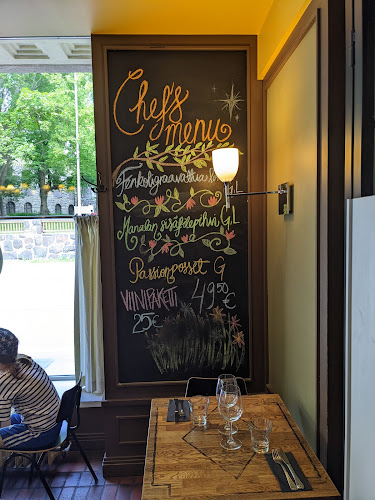 Chef's
menu
Fenkoligraavattua
Manalan sisäfilepihvi, G, L
Passionposset G
VIINIPAKETTI 49,50€
25€